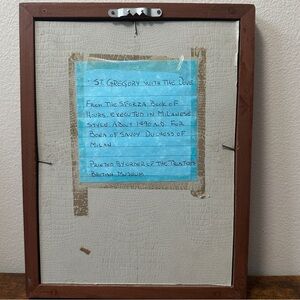 ST GREGORY WITH THE DOVE
FROM THE SFORZA BOOK OF
HOURS. EXECUTED IN MILANESE
STYLE. ABOUT 1490 A.D. FOR
BONA OF SAVOY DUCHESS OF
MILAN.
PRINTED BY ORDER OF THE TRUSTEES
BRITISH MUSEUM